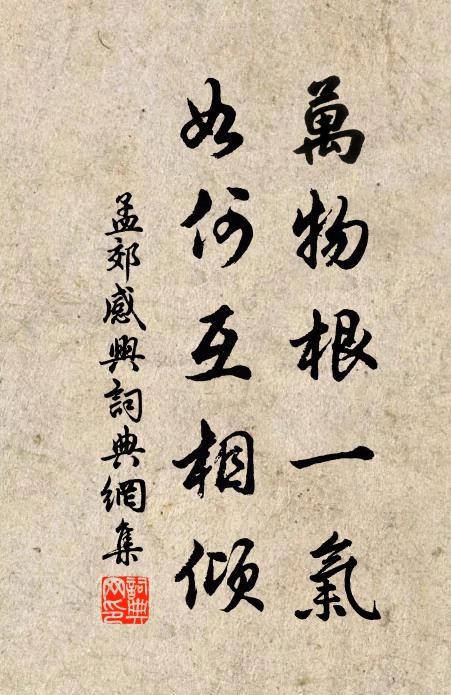 萬物根一氣
如何互相傾
孟郊感興詞典網集
詞典網印